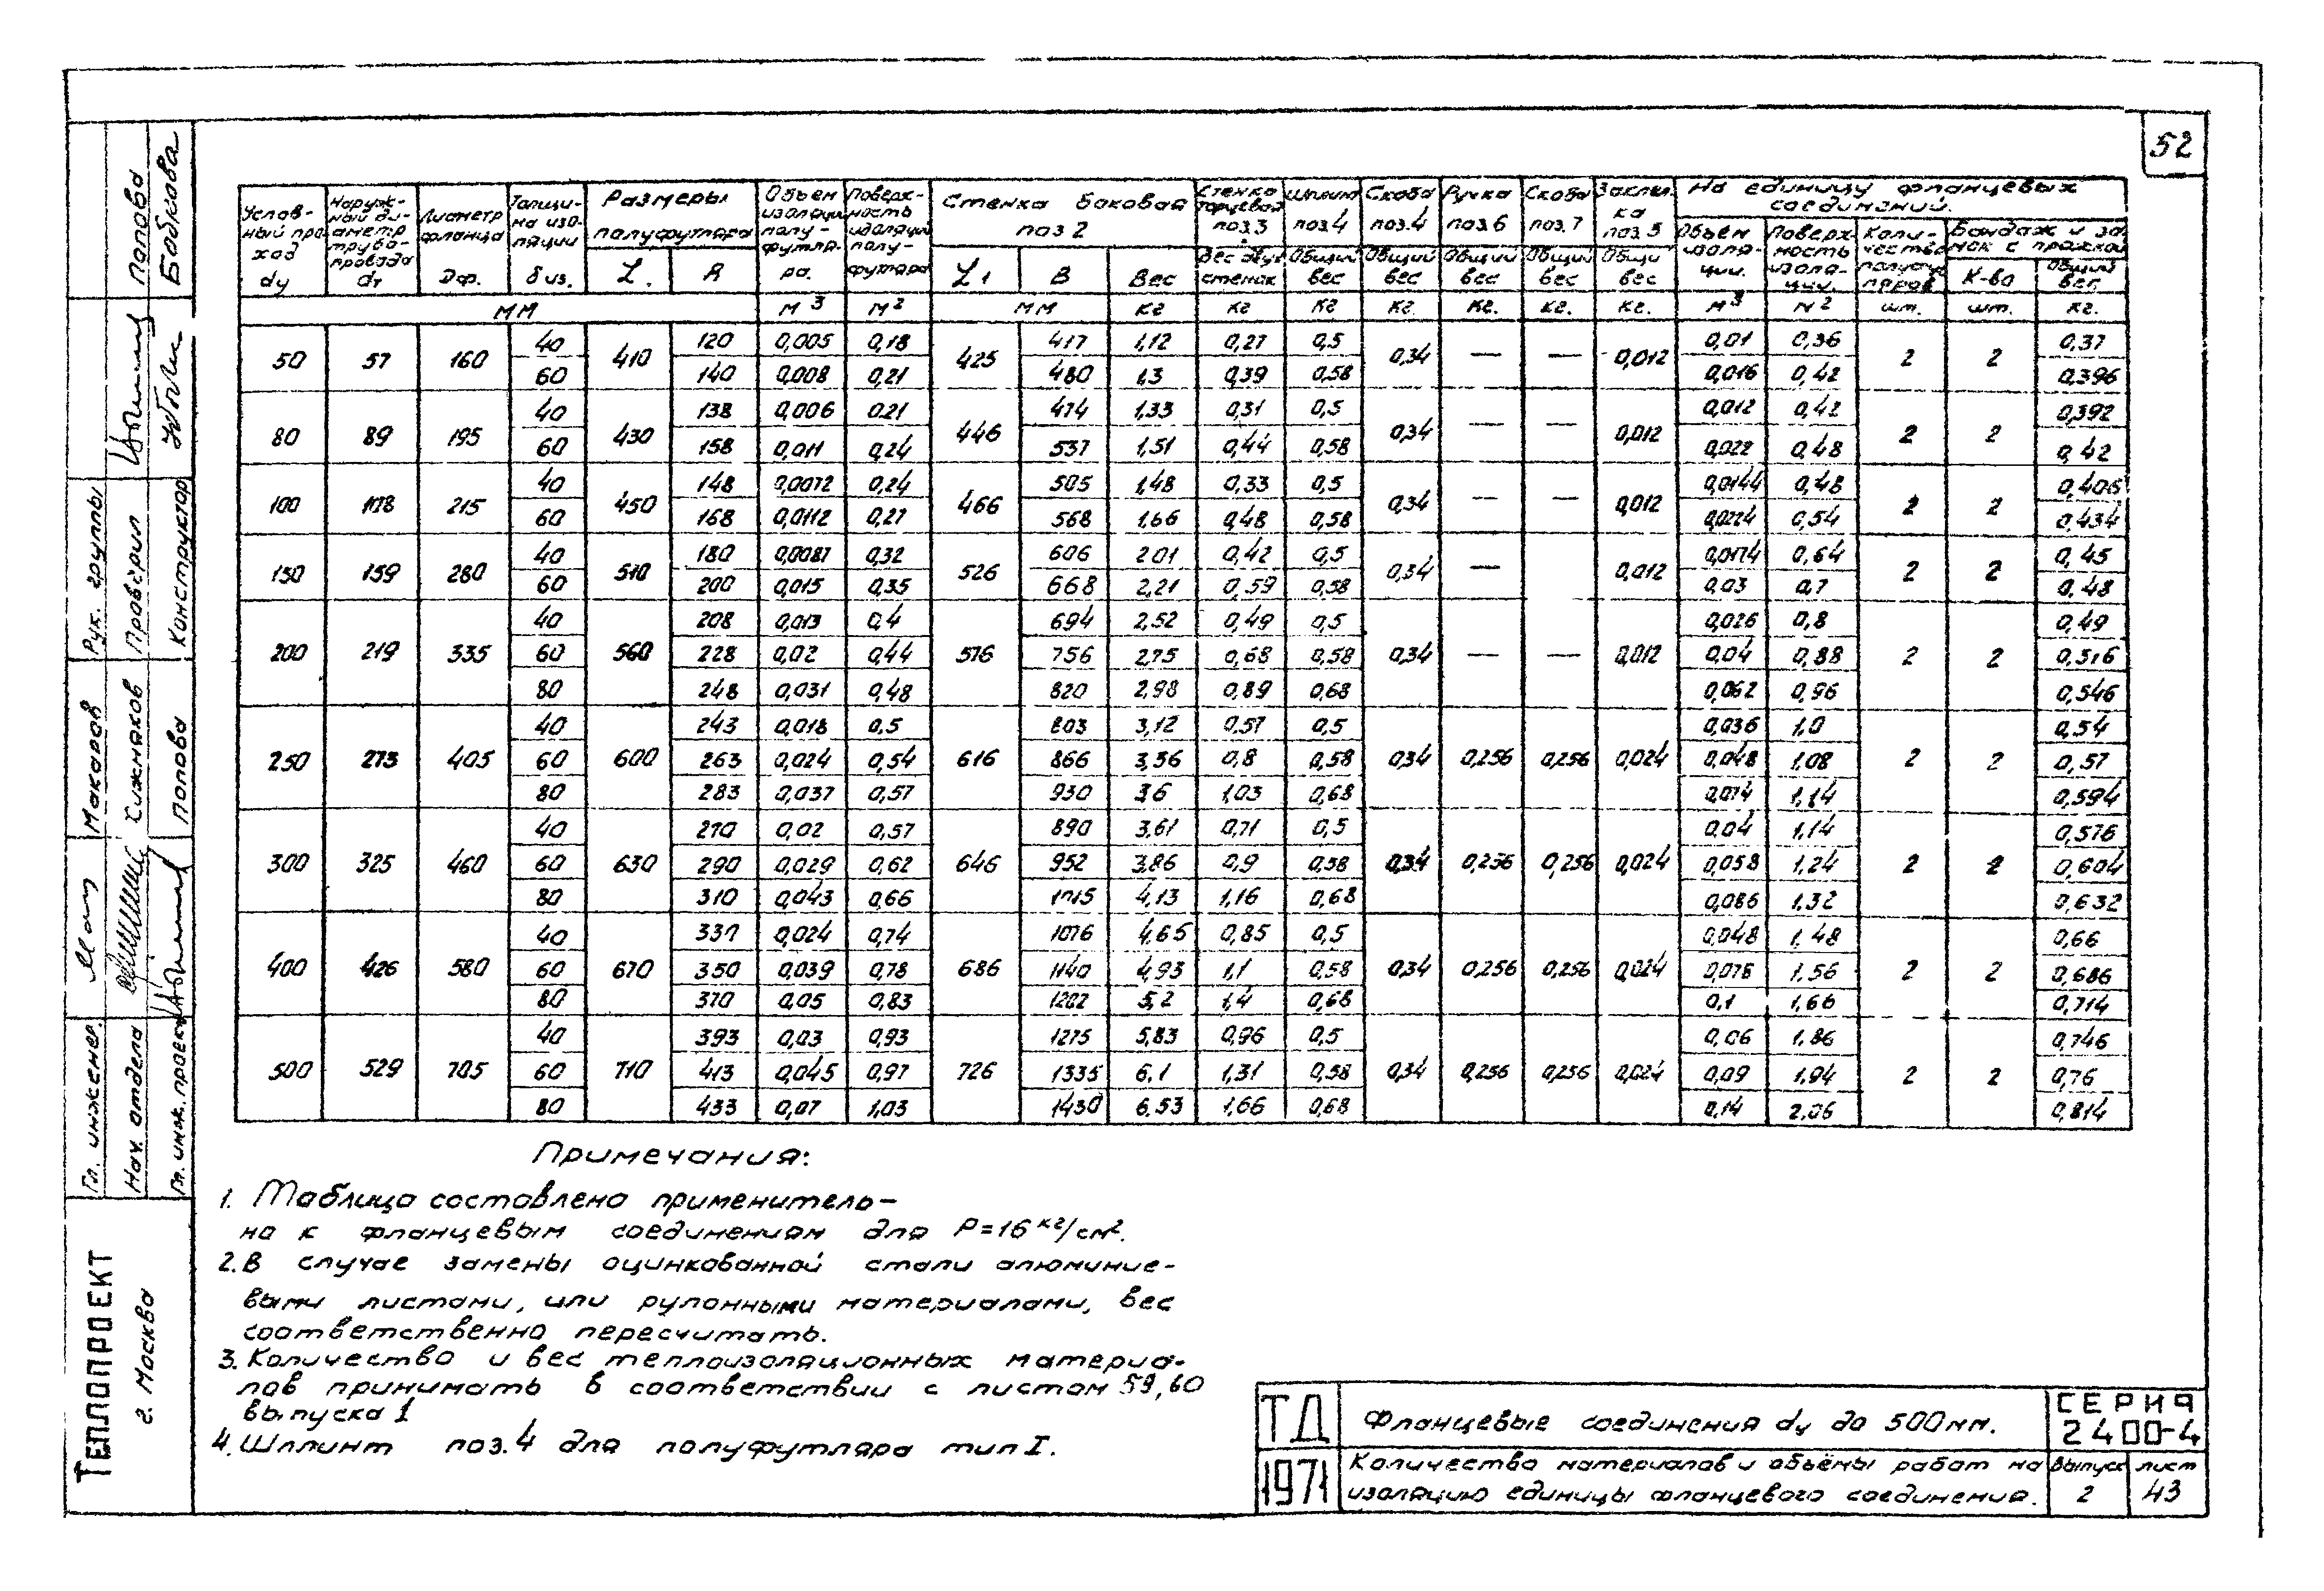 52
Услов-
ный про
ход
dу
Наруж-
ный ди-
аметр
трубо-
провода
dт
Диаметр
фланца
Дф.
Толщи-
на изо-
ляции
δиз.
Размеры
полуфутляра
L. R
Объем
изоляции
полу-
футля-
ра.
Поверх-
ность
изоляции
полу-
футляра
Стенка боковая
поз 2
L1 В Вес
Стенка
торцевая
поз.3
Вес двух
стенок
Шплинт
поз.4
Общий
вес
Скоба
поз.4
Общий
вес
Ручка
поз.6
Общий
вес
Скоба
поз.7
Общий
вес
Заклеп.
ка
поз.5
Общи
вес
На единицу фланцевых
соединений.
Объем
изоля-
ции.
Поверх-
ность
изоля-
ции.
Коли-
чество
полуфут
ляров
Бандаж и за
мок с пряжкой
К-во
Общий
вес
мм м3 м2 мм кг кг кг кг. кг. кг. кг. м3 м2 шт. шт. кг.
50 57 160 40 410 120 0,005 0,18 425 417 1,12 0,27 0,5 0,34 — — 0,012 0,01 0,36 2 2 0,37
60 140 0,008 0,21 480 1,3 0,39 0,58 0,016 0,42 0,396
80 89 195 40 430 138 0,006 0,21 446 474 1,33 0,31 0,5 0,34 — — 0,012 0,012 0,42 2 2 0,392
60 158 0,011 0,24 537 1,51 0,44 0,58 0,022 0,48 0,42
100 108 215 40 450 148 0,0072 0,24 466 505 1,48 0,33 0,5 0,34 — — 0,012 0,0144 0,48 2 2 0,406
60 168 0,0112 0,27 568 1,66 0,48 0,58 0,0224 0,54 0,434
150 159 280 40 510 180 0,0087 0,32 526 606 2,01 0,42 0,5 0,34 — 0,012 0,0174 0,64 2 2 0,45
60 200 0,015 0,35 668 2,21 0,59 0,58 0,03 0,7 0,48
200 219 335 40 560 208 0,013 0,4 576 694 2,52 0,49 0,5 0,34 — — 0,012 0,026 0,8 2 2 0,49
60 228 0,02 0,44 756 2,75 0,68 0,58 0,04 0,88 0,516
80 248 0,031 0,48 820 2,98 0,89 0,68 0,062 0,96 0,546
250 273 405 40 600 243 0,018 0,5 616 803 3,12 0,57 0,5 0,34 0,256 0,256 0,024 0,036 1,0 2 2 0,54
60 263 0,024 0,54 866 3,36 0,8 0,58 0,048 1,08 0,57
80 283 0,037 0,57 930 3,6 1,03 0,68 0,074 1,14 0,594
300 325 460 40 630 270 0,02 0,57 646 890 3,61 0,71 0,5 0,34 0,256 0,256 0,024 0,04 1,14 2 2 0,576
60 290 0,029 0,62 952 3,86 0,9 0,58 0,058 1,24 0,604
80 310 0,043 0,66 1015 4,13 1,16 0,68 0,086 1,32 0,632
400 426 580 40 670 330 0,024 0,74 686 1076 4,65 0,85 0,5 0,34 0,256 0,256 0,024 0,048 1,48 2 2 0,66
60 350 0,039 0,78 1140 4,93 1,1 0,58 0,078 1,56 0,686
80 370 0,05 0,83 1202 5,2 1,4 0,68 0,1 1,66 0,714
500 529 705 40 710 393 0,03 0,93 726 1275 5,83 0,96 0,5 0,34 0,256 0,256 0,024 0,06 1,86 2 2 0,746
60 413 0,045 0,97 1335 6,1 1,31 0,58 0,09 1,94 0,76
80 433 0,07 1,03 1430 6,53 1,66 0,68 0,14 2,06 0,814
Примечания:
1. Таблица составлена применитель-
но к фланцевым соединениям для Р=16 кг/см2.
2. В случае замены оцинкованной стали алюминие-
выми листами, или рулонными материалами, вес
соответственно пересчитать.
3. Количество и вес теплоизоляционных материа-
лов принимать в соответствии с листом 59,60
выпуска 1
4. Шплинт поз.4 для полуфутляра тип I.
ТД
1971
Фланцевые соединения dу до 500мм.
Количество материалов и объёмы работ на
изоляцию единицы фланцевого соединения.
СЕРИЯ
2400-4
Выпуск лист
2 43
Теплопроект
г. Москва
Гл. инженер. Макаров
Нач. отдела Хижняков
Гл. инж. проекта Попова
Рук. группы
Проверил Попова
Конструктор Бобкова